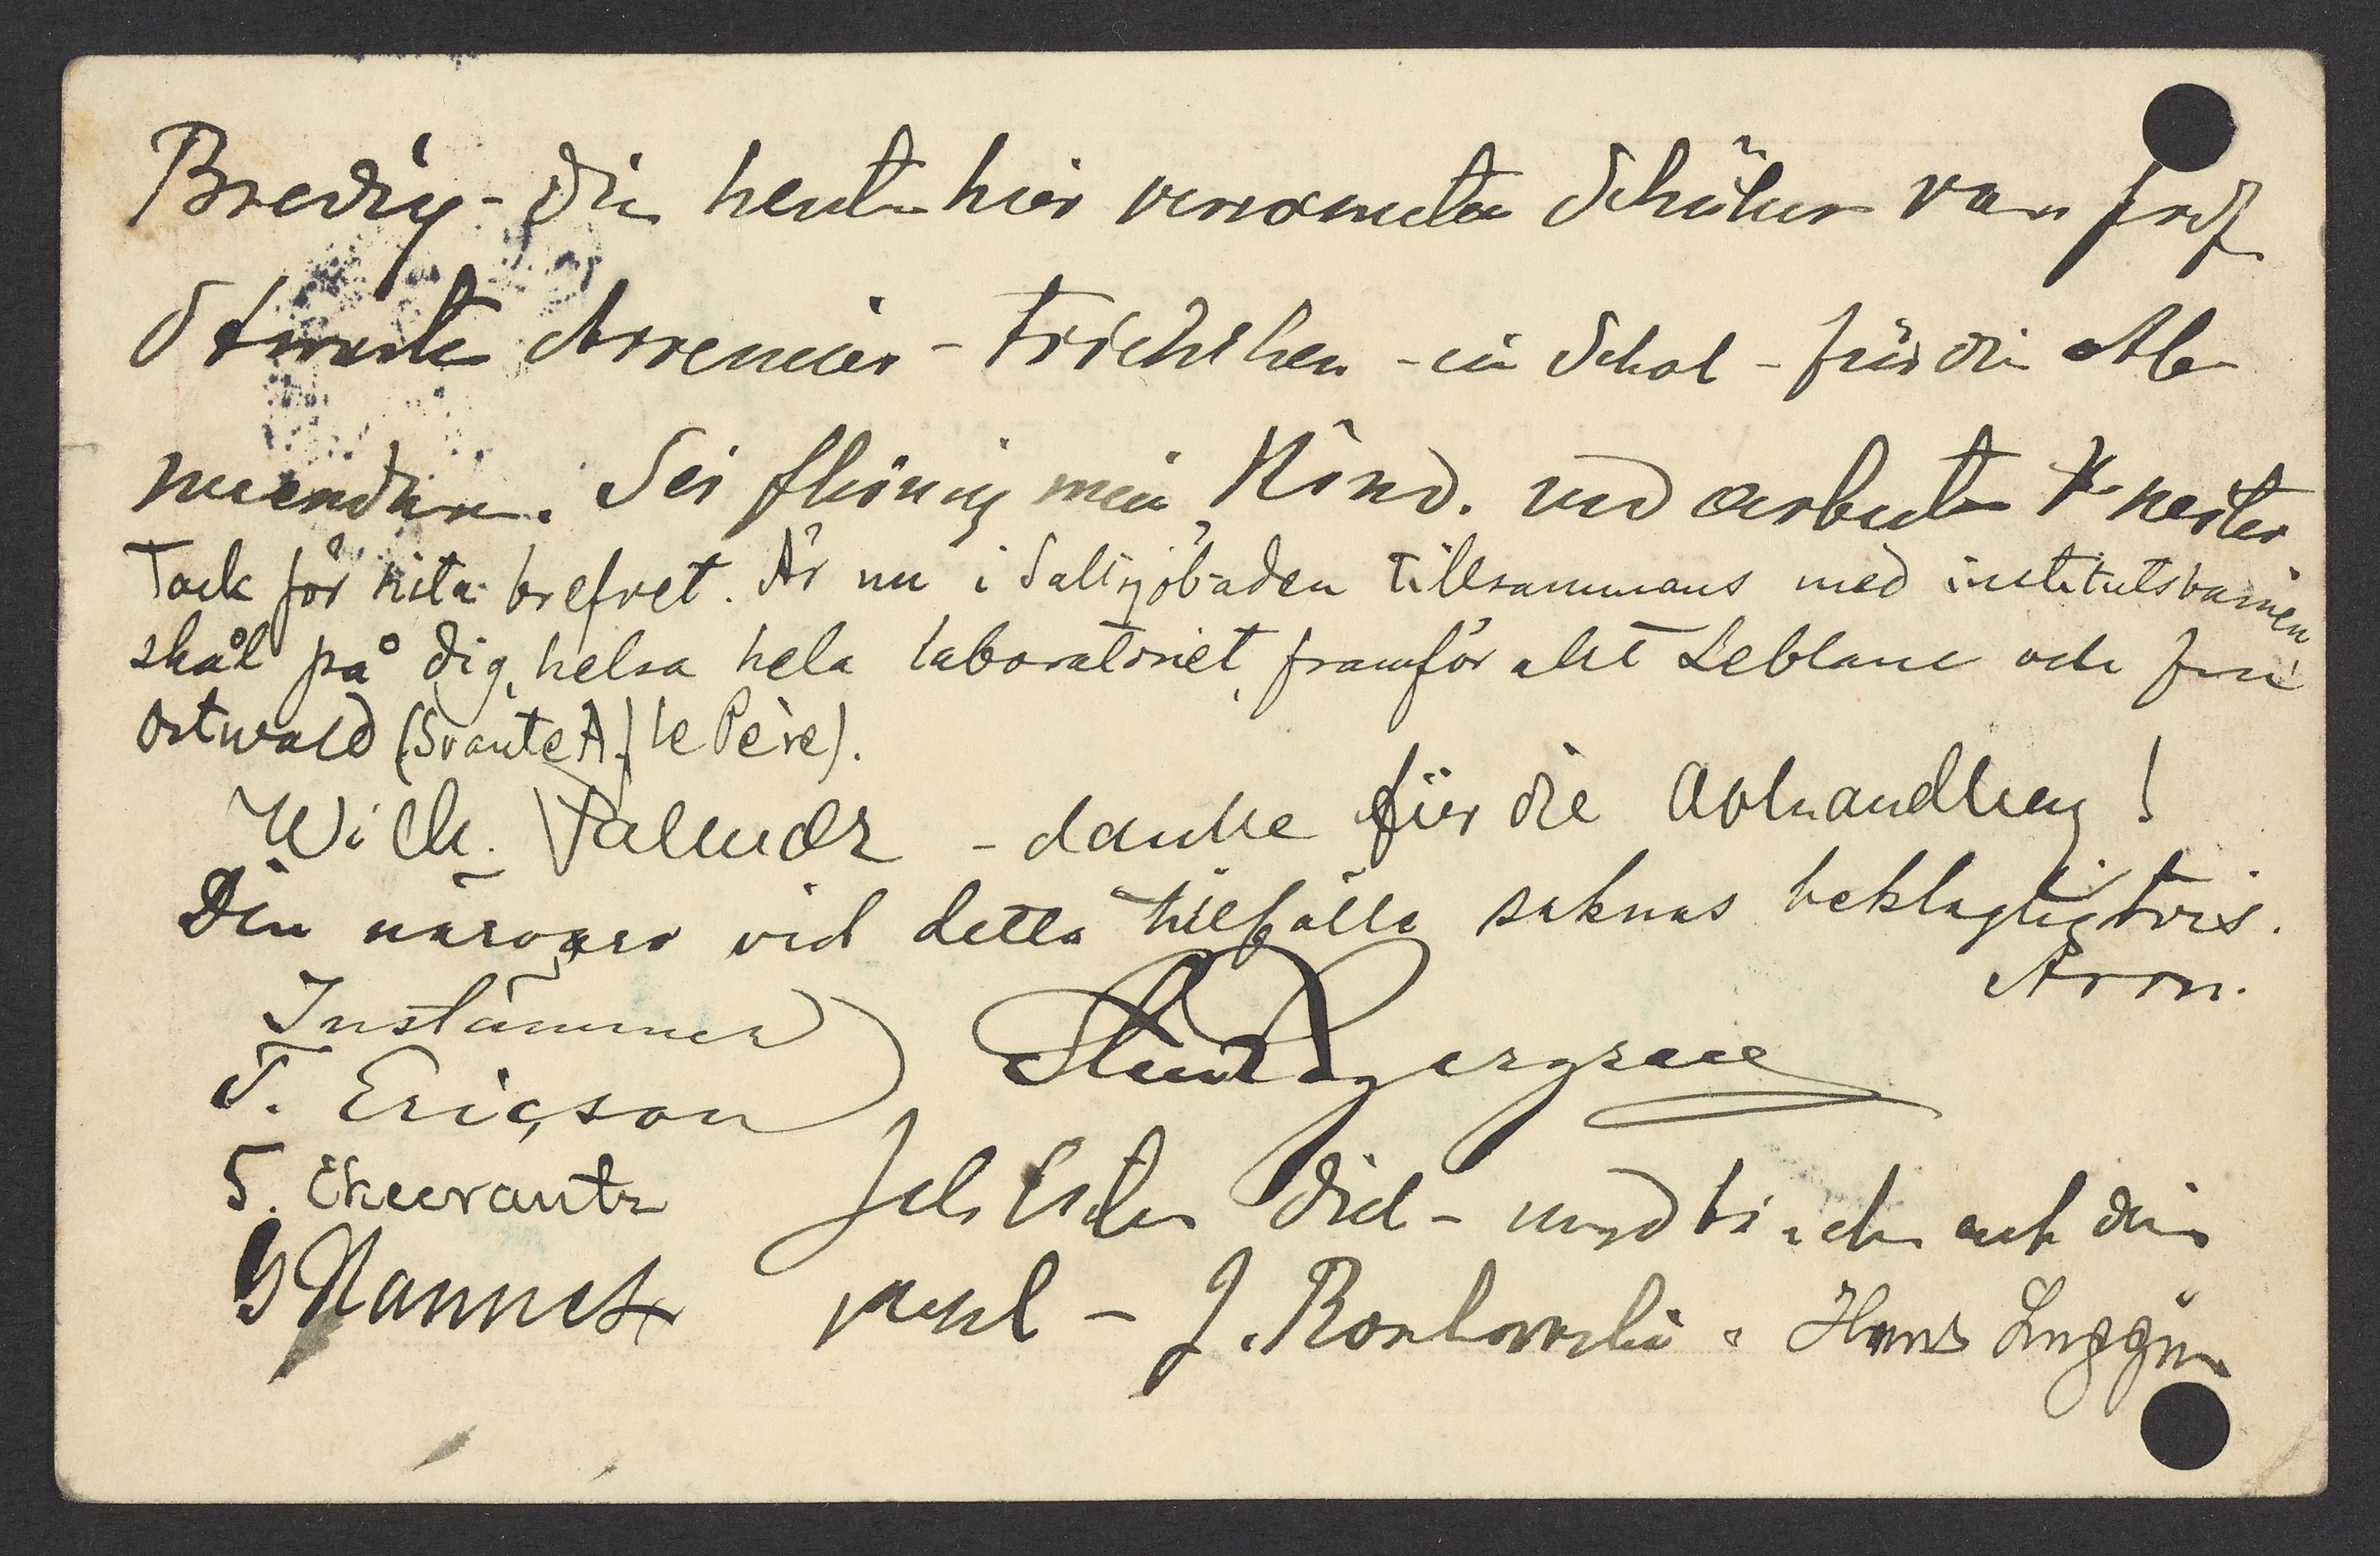 Bredig - Die heute hier versamelte Schüler von Prof
Svante Arrenius - trinken - ein Schol - für die Ab
wesenden. Sei fleissig mein Kind. und arbeite weiter
Tack för sista brefvet. Är nu i Saltsjöbaden tillsammans med institutsbarnen
skål på dig, helsa hela laboratoriet, framför allt Leblanc och fru
Ostwald (Svante A. le Père).
Wilh. Palmær - danke für die Abhandlung!
Din närvaro vid detta tillfälle saknas beklagligtvis.
Arrn.
Instämmer
T. Ericson
S. Lagergren
Ich liebe Dich - und trinke auf dein
G Mannich
wohl - J. Roszkowski. Hans Euggin